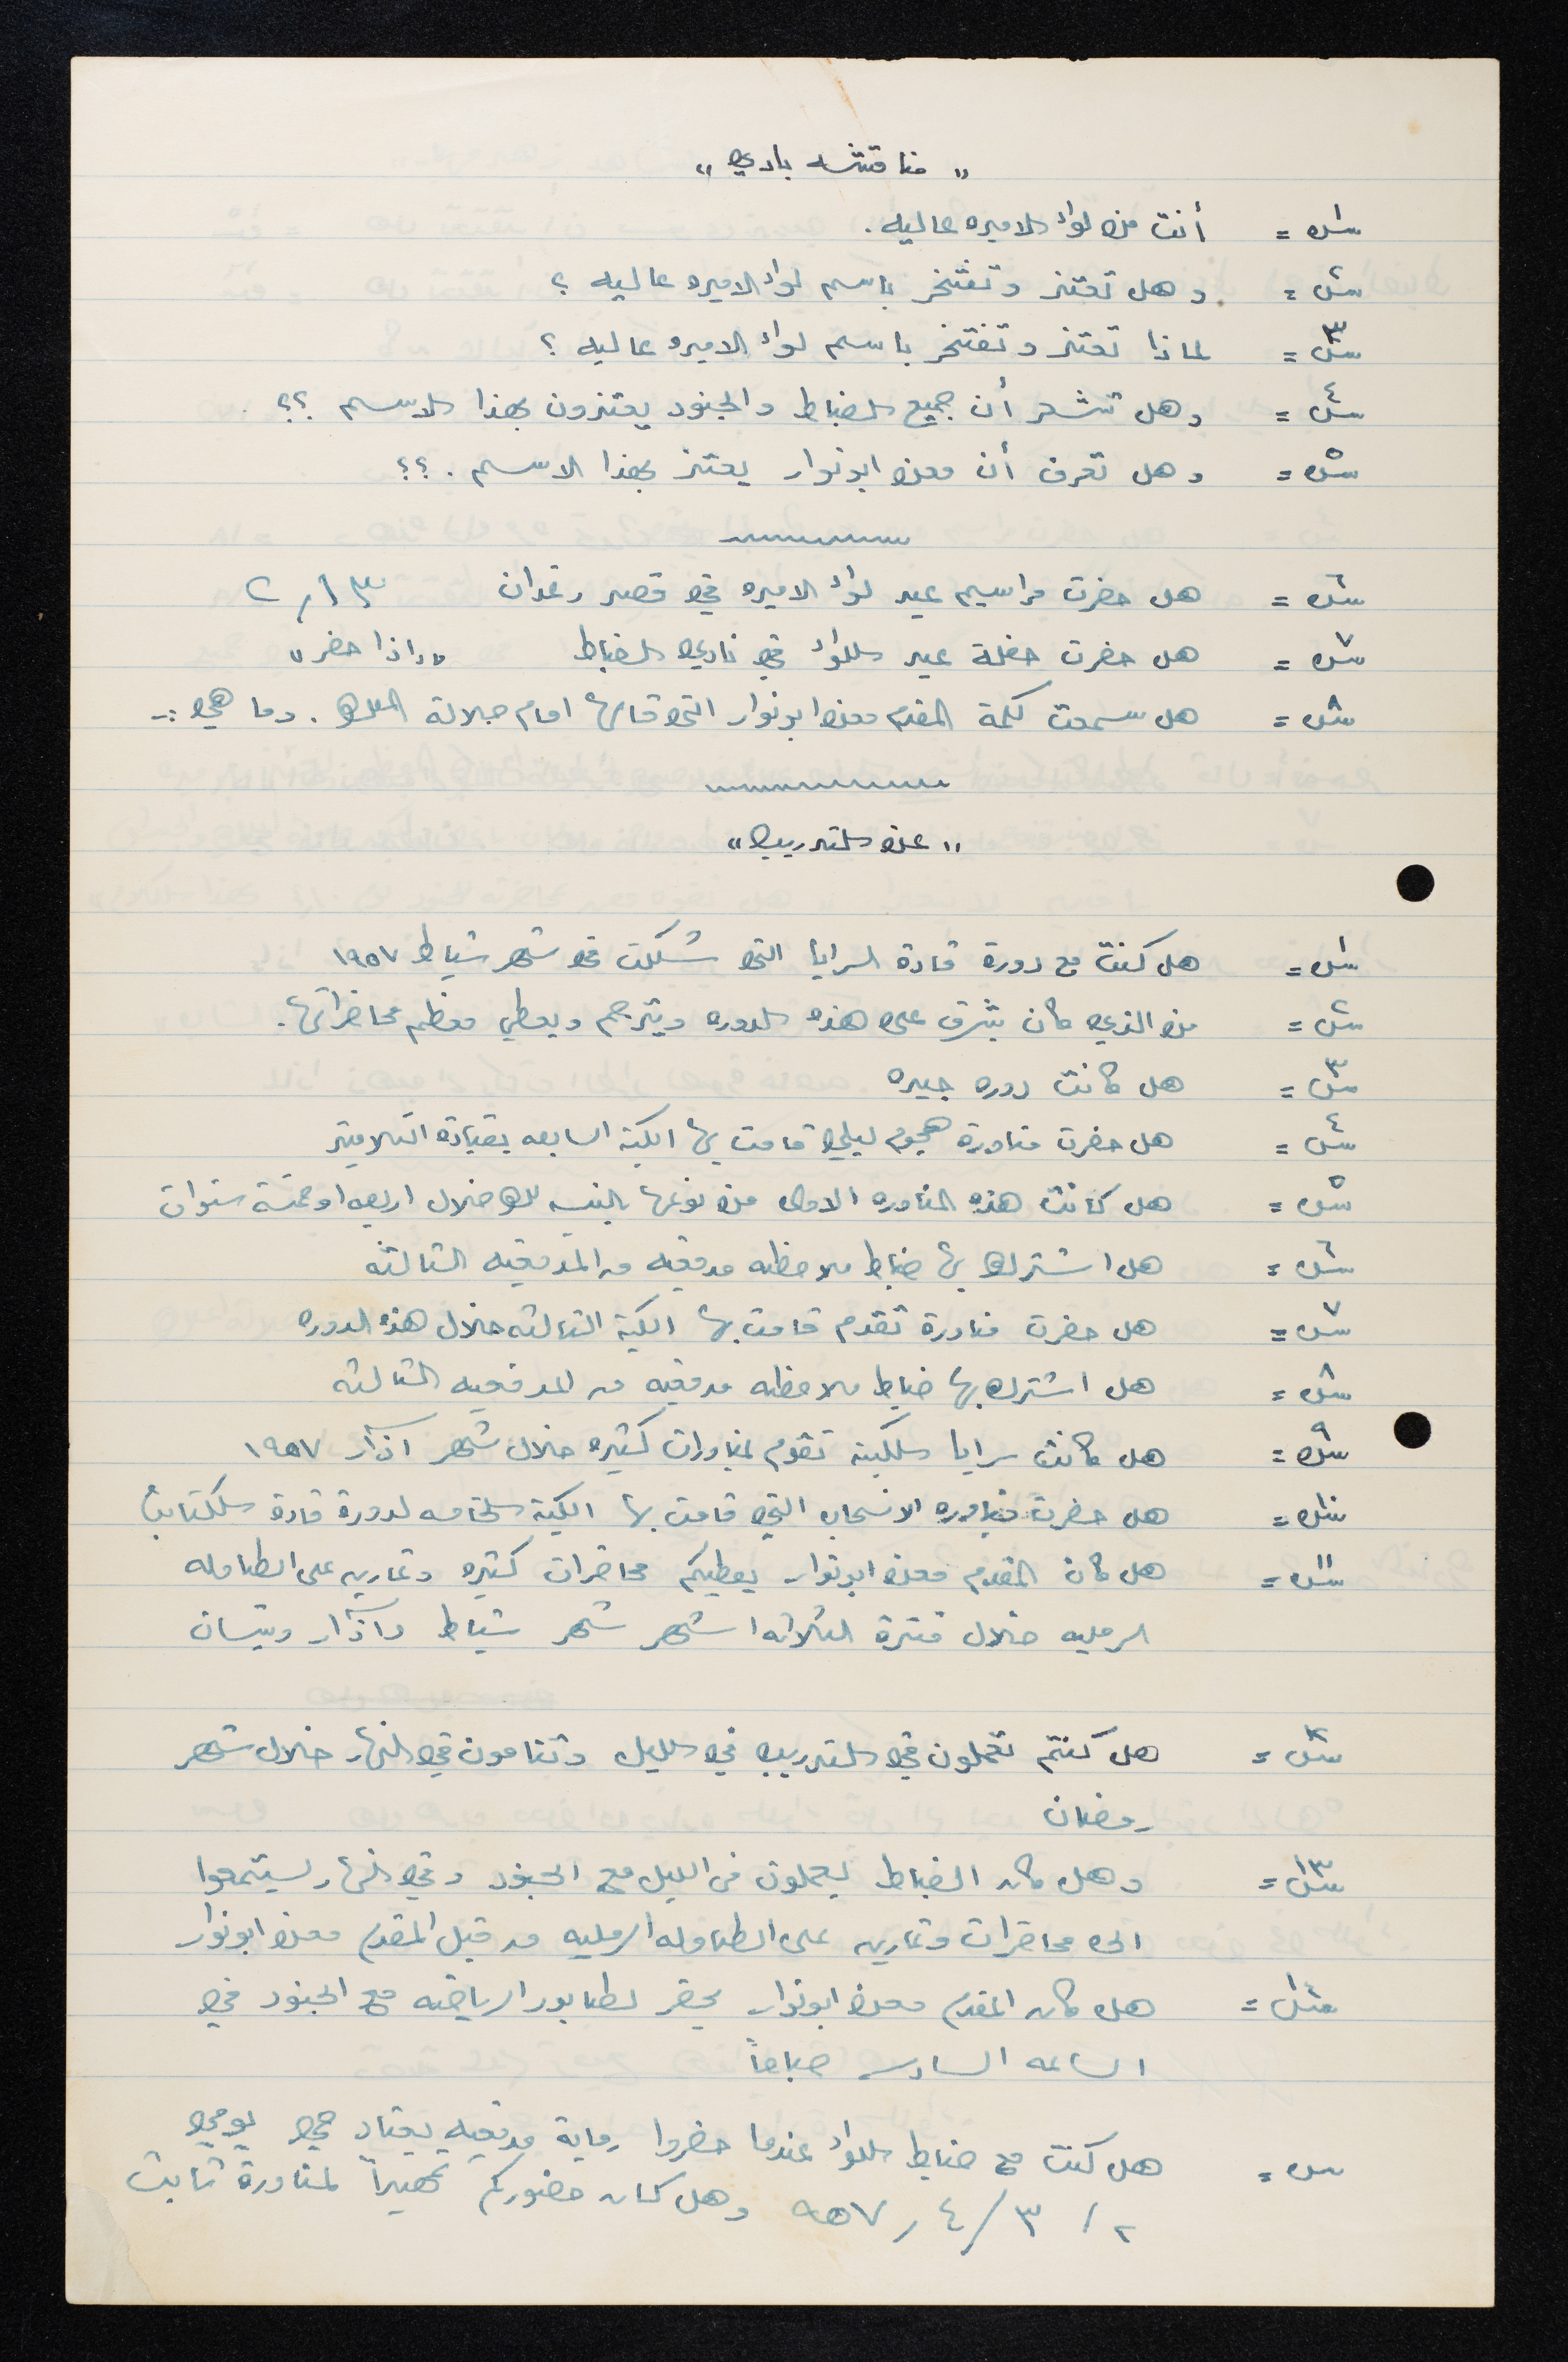 " مناقشه بادي "
س١ = أنت من لواء الاميره عاليه .
س٢ = وهل تعتز وتفتخر باسم لواء الاميره عاليه ؟
س٣ = لماذا تعتز وتفتخر باسم لواء الاميره عاليه ؟
س٤ = وهل تشعر أن جميع الضباط والجنود يعتزون بهذا الاسم ؟؟
س٥ = وهل تعرف أن معن ابونوار يعتز بهذا الاسم . ؟؟
س٦ = هل حضرت مراسيم عيد لواء الاميره في قصر رغدان
س٧ = هل حضرت حفلة عيد اللواء في نادي الضباط " واذا حضر "
س٨ = هل سمعت كلمة المقدم معن ابونوار التي قالها امام جلالة الملك . وما هي :-
" عن التدريب "
س١ = هل كنت مع دورة قادة السرايا التي شكلت في شهر شباط ١٩٥٧
س٢ = من الذي كان يشرف على هذه الدوره ويترجم ويعطي معظم محاضراتها .
س٣ = هل كانت دوره جيده
س٤ = هل حضرت مناورة هجوم ليلي قامت بها الكتيبة السابعه بقيادة التلاميذ
س٥ = هل كانت هذه المناوره الاولى من نوعها بالنسبه لك خلال اربعه او خمسة سنوات
س٦ = هل اشترك بها ضباط ملاحظه مدفعيه من المدفعيه الثالثه
س٧ = هل حضرت مناورة تقدم قامت بها الكتيبة الثالثه خلال هذه الدوره
س٨ = هل اشترك بها ضباط ملاحظه مدفعيه من المدفعيه الثالثه
س٩ = هل كانت سرايا الكتيبه تقوم بمناورات كثيره خلال شهر اذار ١٩٥٧
س١٠ = هل حضرت مناوره الانسحاب التي قامت بها الكتيبة الخامسه لدورة قادة الكتائب
س١١ = هل كان المقدم معن ابونوار يعطيكم محاضرات كثيره وتمارين على الطاوله
الرمليه خلال فترة الثلاثه اشهر شهر شباط واذار ونيسان
س١٢ = هل كنتم تعملون في التدريب في الليل وتنامون في النهار خلال شهر
رمضان
س١٣ = وهل كان الضباط يعملون في الليل مع الجنود وفي النهار ليستمعوا
الى محاضرات وتمارين على الطاوله الرمليه من قبل المقدم معن ابونوار
س١٤ = هل كان المقدم معن ابونوار يحضر لطابور الرياضه مع الجنود في
الساعه السادسه صباحاً
س = هل كنت مع ضباط اللواء عندما حضروا رماية مدفعيه بعتاد حي يومي
٢ / ٣ / ٤ / ٩٥٧ وهل كان حضوركم تمهيداً لمناورة ثابت